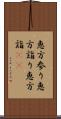 恵方参り恵
方詣り恵方
詣